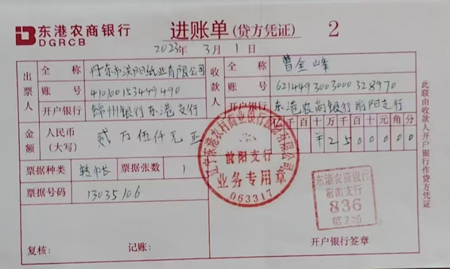 东港农商银行
DGRCB
进账单(贷方凭证) 2
2023年 3月 1日
出票人 全称 丹东市沃阳纸业有限公司
账号 410100153449490
开户银行 锦州银行东港支行
收款人 全称 曹金峰
账号 6214493003000328970
开户银行 东港农商银行前阳支行
金额 人民币(大写) 贰万伍仟元正
千百十万千百十元角分
¥25000
票据种类 转支 票据张数 1
票据号码 13035106
复核: 记账:
开户银行签章
此联由收款人开户银行作贷方凭证
前阳支行
业务专用章
063317
东港农商银行
前阳支行
836